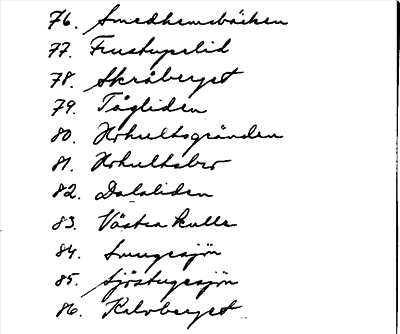 76. Smedhemsbäcken
77. Frustupelid
78. Skråberget
79. Tågliden
80. Hokultsgränden
81. Hokultsbro
82. Dalaliden
83. Västra kulle
84.
85. Sjöstugesjön
86. Kalvberget